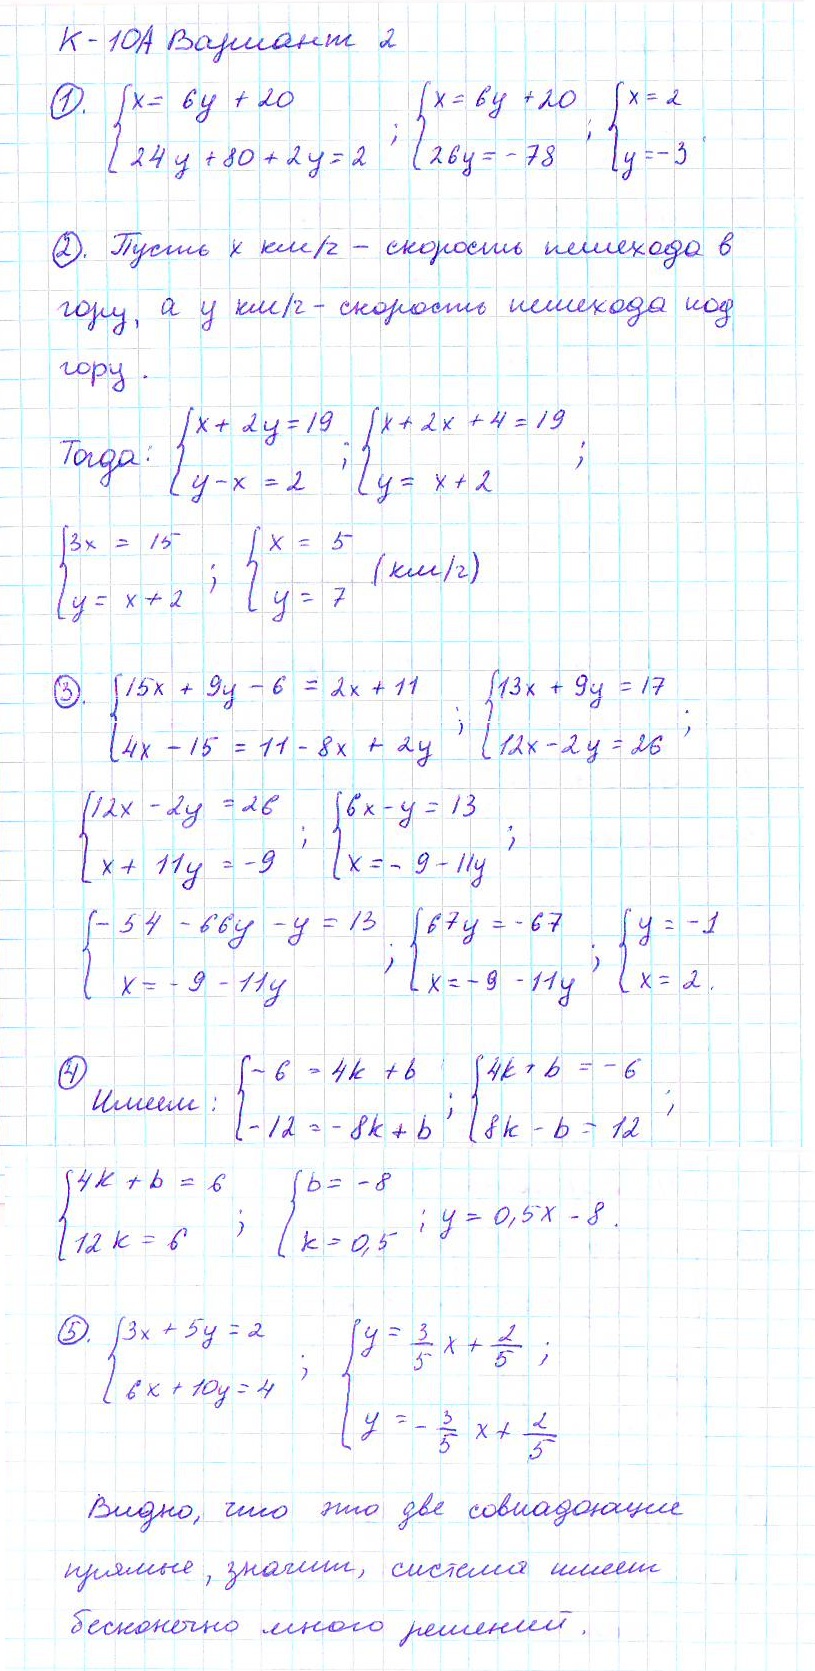 К-10А Вариант 2
①. {x = 6y + 20; 24y + 80 + 2y = 2 ; {x = 6y + 20; 26y = -78 ; {x = 2; y = -3.
②. Пусть x км/ч – скорость пешехода в
гору, а y км/ч – скорость пешехода под
гору.
Тогда: {x + 2y = 19; y - x = 2 ; {x + 2x + 4 = 19; y = x + 2 ;
{3x = 15; y = x + 2 ; {x = 5; y = 7 (км/ч)
③. {15x + 9y - 6 = 2x + 11; 4x - 15 = 11 - 8x + 2y ; {13x + 9y = 17; 12x - 2y = 26 ;
{12x - 2y = 26; x + 11y = -9 ; {6x - y = 13; x = -9 - 11y ;
{-54 - 66y - y = 13; x = -9 - 11y ; {67y = -67; x = -9 - 11y ; {y = -1; x = 2.
④ Имеем: {-6 = 4k + b; -12 = -8k + b ; {4k + b = -6; 8k - b = 12 ;
{4k + b = 6; 12k = 6 ; {b = -8; k = 0,5 ; y = 0,5x - 8.
⑤. {3x + 5y = 2; 6x + 10y = 4 ; {y = 3/5 x + 2/5 ; y = -3/5 x + 2/5
Видно, что это две совпадающие
прямые, значит, система имеет
бесконечно много решений.